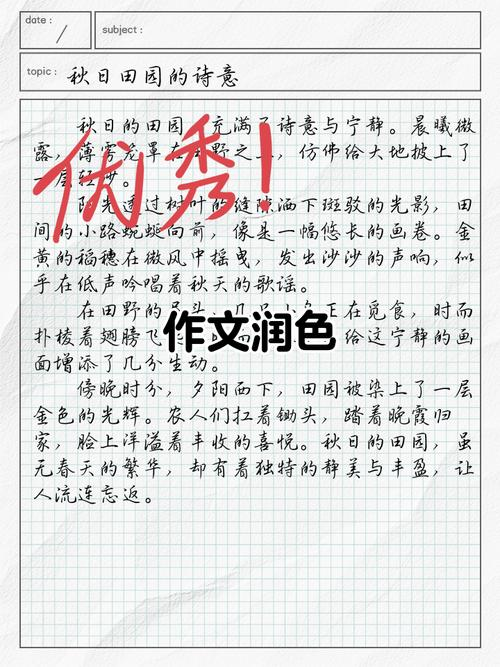 date :
subject :
topic : 秋日田园的诗意
秋日的田园 充满了诗意与宁静。晨曦微
露，薄雾笼罩在田野之上，仿佛给大地披上了
一层轻
优秀！
阳光透过树叶的缝隙洒下斑驳的光影，田
间的小路蜿蜒向前，像是一幅悠长的画卷。金
黄的稻穗在微风中摇曳，发出沙沙的声响，似
乎在低声吟唱着秋天的歌谣。
在田野的 正在觅食，时而
扑棱着翅膀飞 给这宁静的画
作文润色
面增添了几分生动。
傍晚时分，夕阳西下，田园被染上了一层
金色的光辉。农人们扛着锄头，踏着晚霞归
家，脸上洋溢着丰收的喜悦。秋日的田园，虽
无春天的繁华，却有着独特的静美与丰盈，让
人流连忘返。